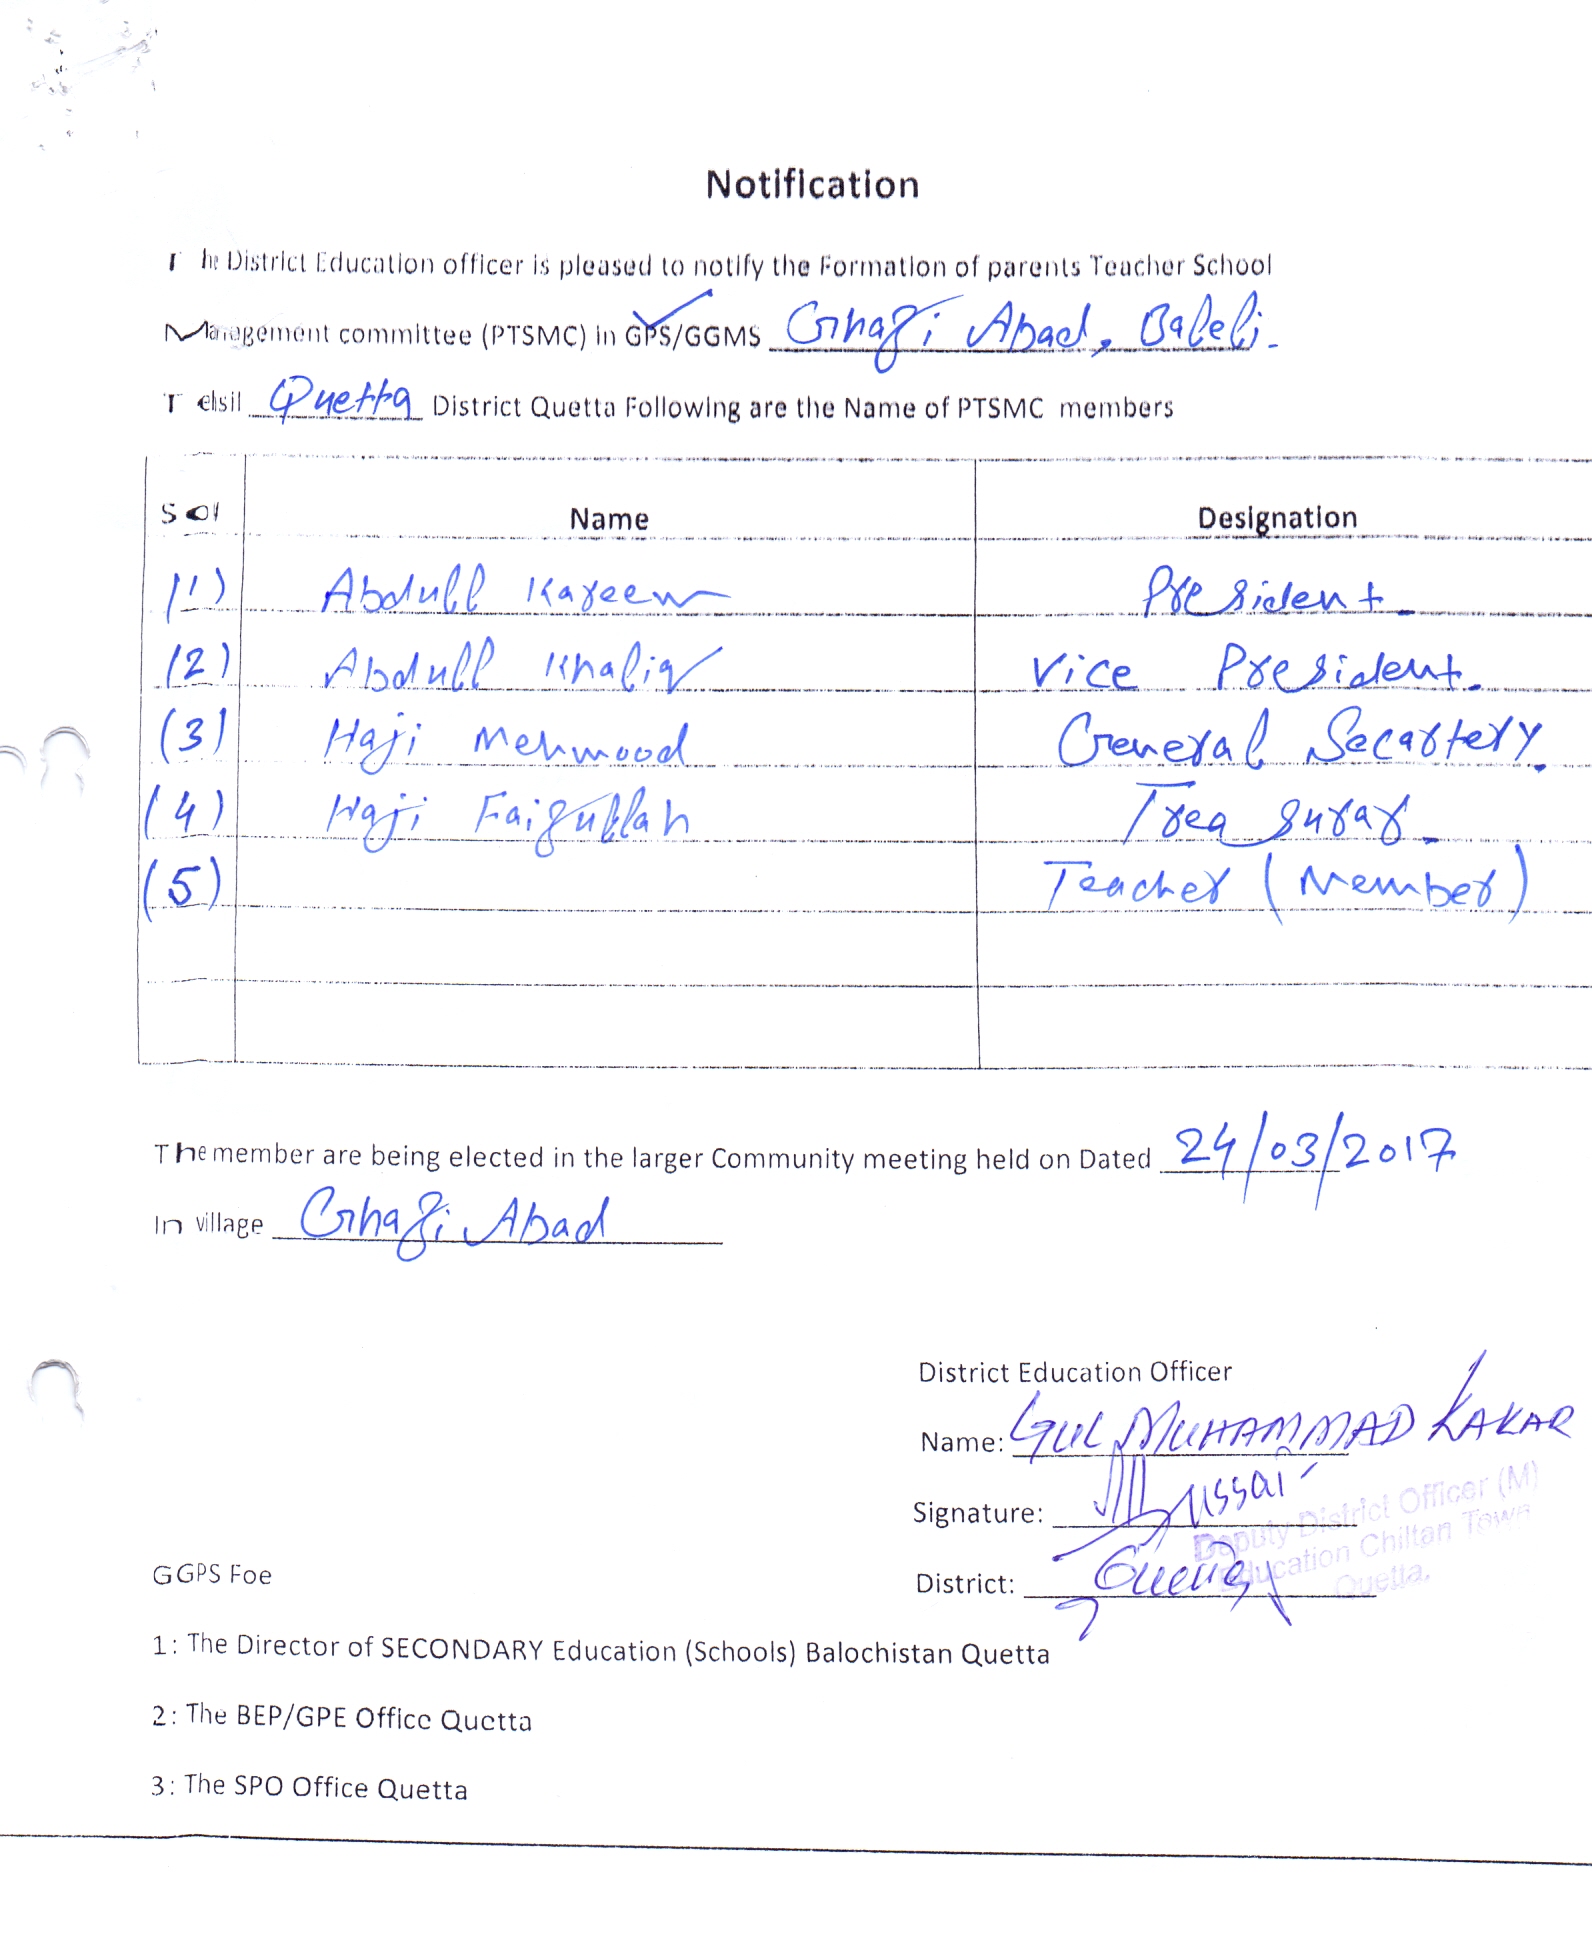 Notification
The District Education officer is pleased to notify the Formation of parents Teacher School
Management committee (PTSMC) in GPS/GGMS Ghazi Abad, Baleli.
Tehsil Quetta District Quetta Following are the Name of PTSMC members
S Name Designation
(1) Abdull Kareem President.
(2) Abdull Khaliq Vice President.
(3) Haji Mehmood General Secartery.
(4) Haji Faizullah Treasurar.
(5) Teacher (Member)
The member are being elected in the larger Community meeting held on Dated 24/03/2017
In village Ghazi Abad
District Education Officer
Name: GUL MUHAMMAD KAKAR
Signature:
Deputy District Officer (M)
Education Chiltan Town
Quetta.
District: Quetta
GGPS Foe
1: The Director of SECONDARY Education (Schools) Balochistan Quetta
2: The BEP/GPE Office Quetta
3: The SPO Office Quetta